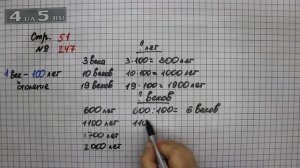 4DA5.RU
Стр. 51
№ 247
1 век - 100 лет
столетие
? лет
3 века 3·100=300 лет
10 веков 10·100=1000 лет
19 веков 19·100=1900 лет
? веков
600 лет 600:100=6 веков
1100 лет 110
1700 лет
2000 лет